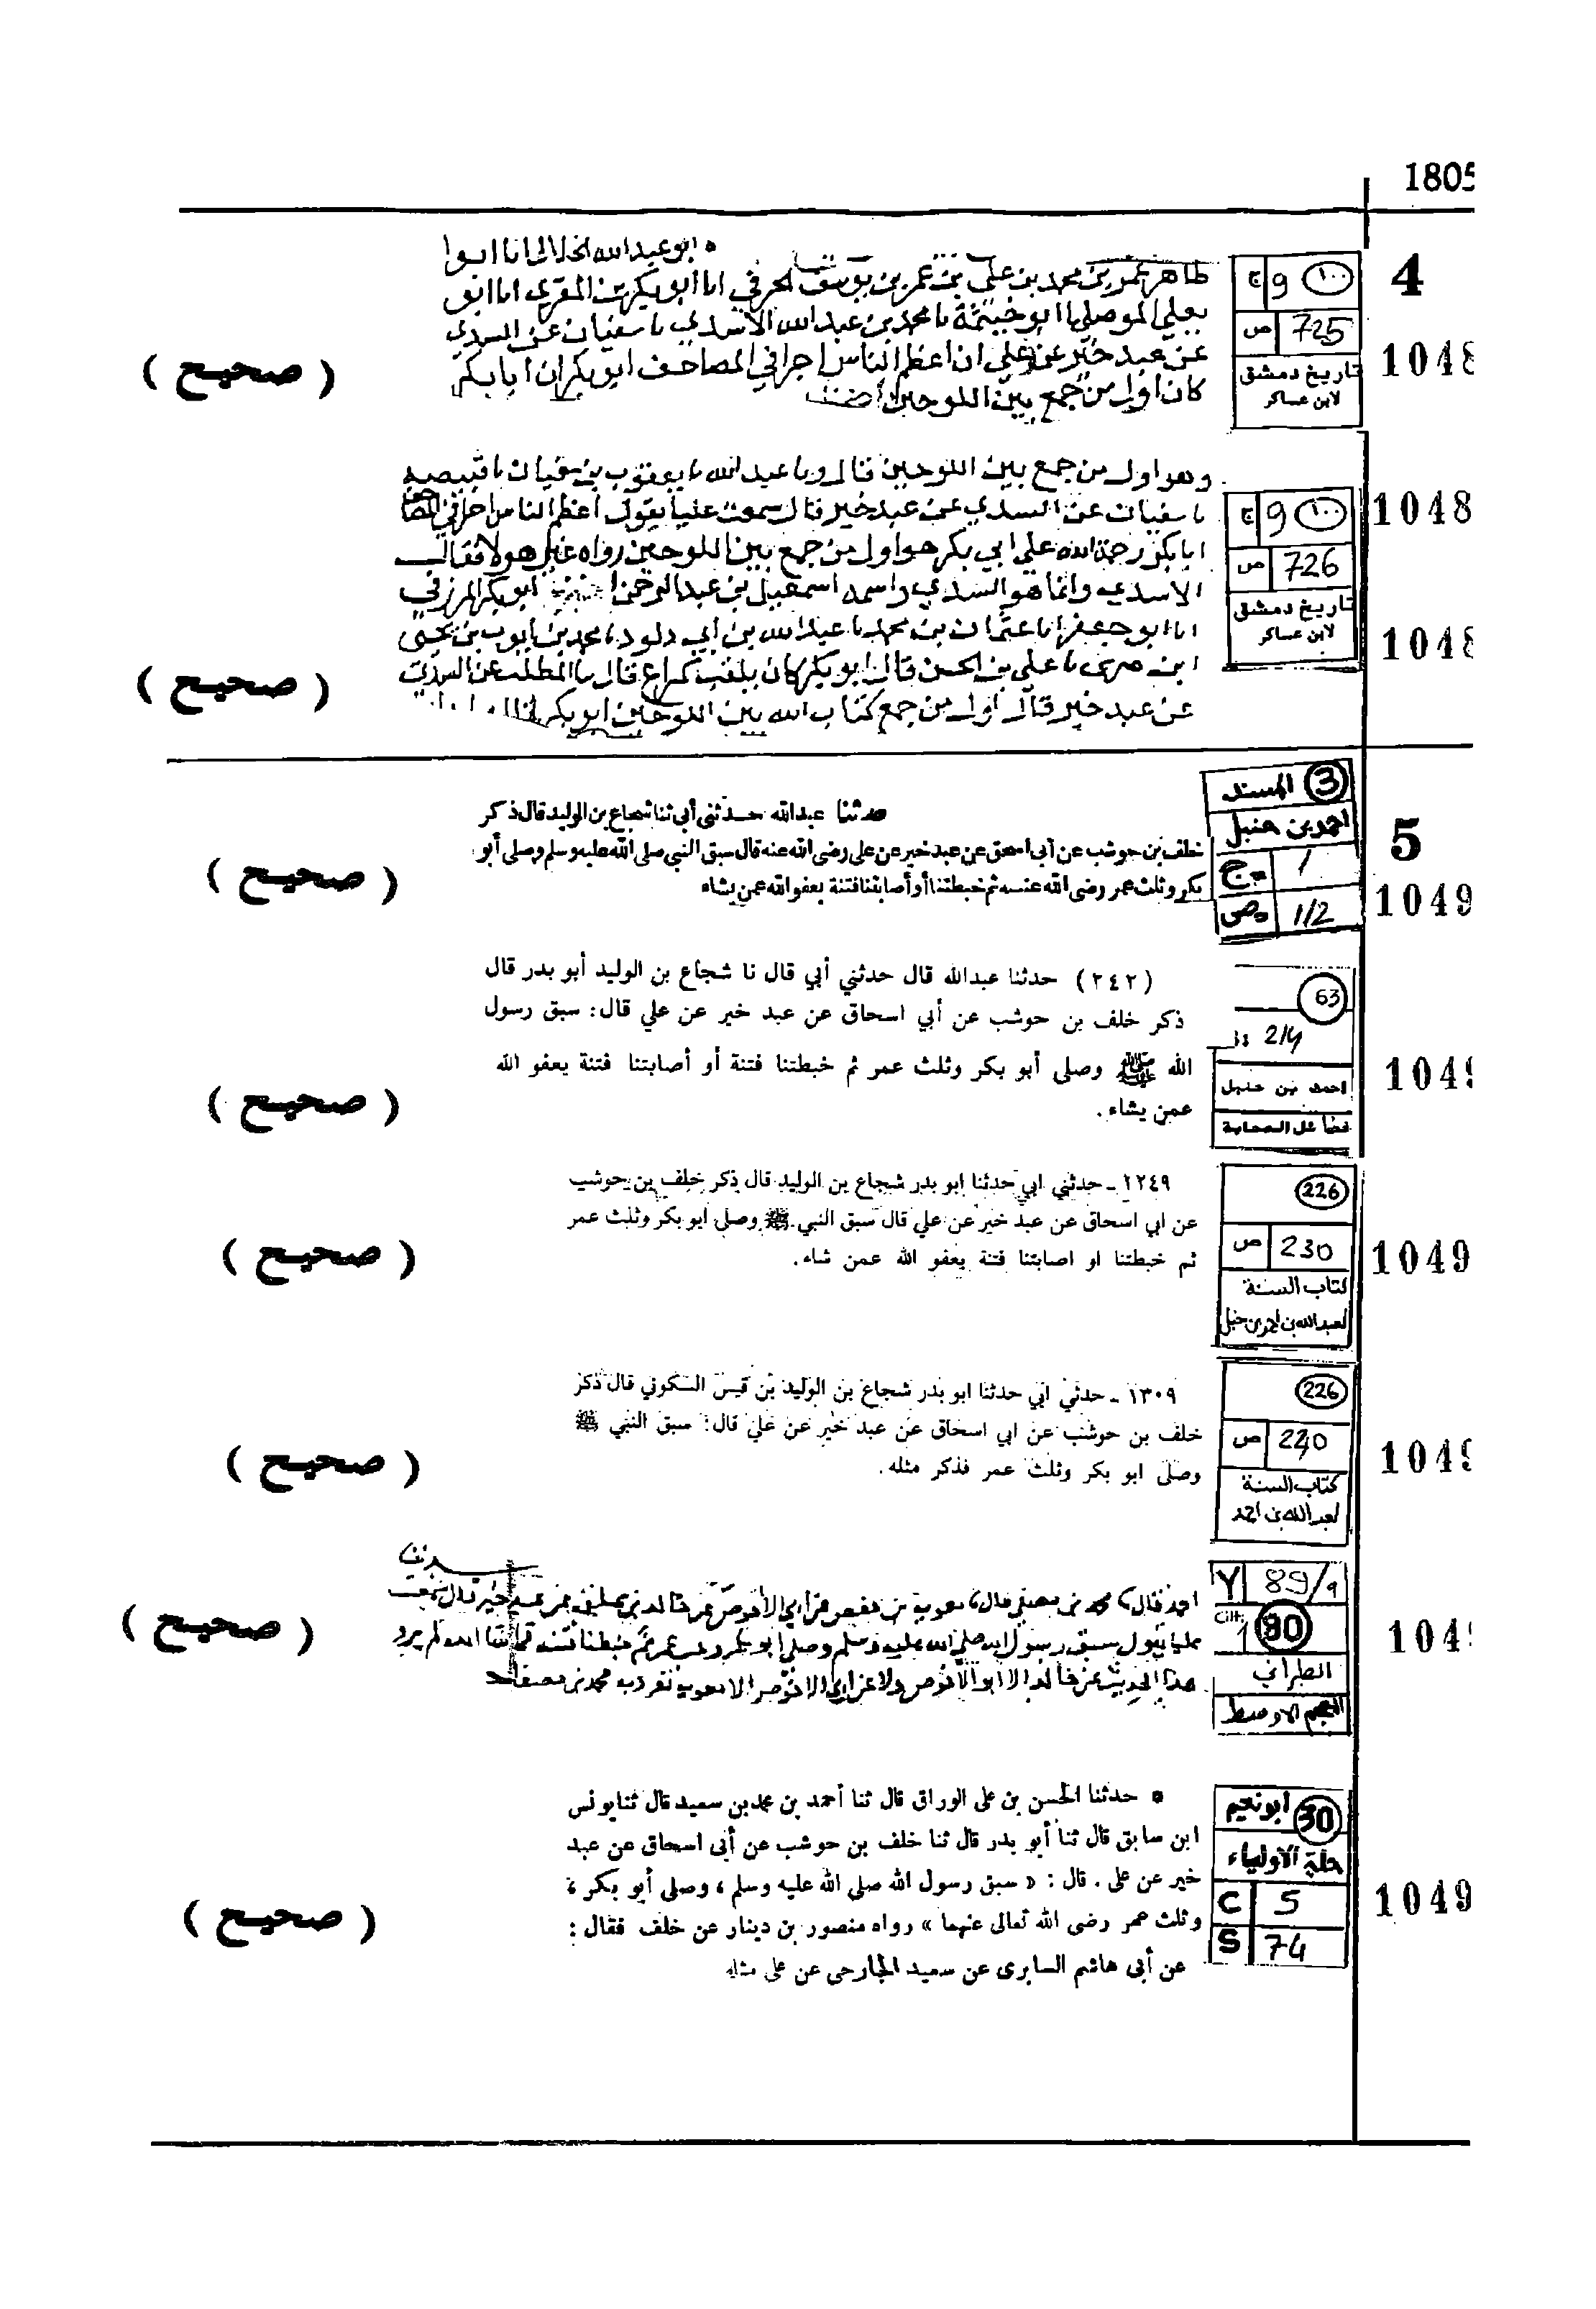 1805
4
ابو عبد الله الخلال انا ابوا
طاهر عمر بن محمد بن علي بن عمر بن يوسف الحرفي انا ابو بكر بن المقري انا ابو
يعلي الموصلي نا ابو خيثمة نا محمد بن عبد الله الاسدي نا سفيان عن السدي
عن عبد خير عن علي ان اعظم الناس اجرا في المصاحف ابو بكر ان ابا بكر
كان اول من جمع بين اللوحين
9 ج
725 ص
تاريخ دمشق
لابن عساكر
1048
( صحيح )
وهو اول من جمع بين اللوحين قال ونا عبد الله نا يعقوب بن سفيان نا قبيصه
نا سفيان عن السدي عن عبد خير قال سمعت عليا يقول اعظم الناس اجرا في المصاحف
ابا بكر رحمة الله علي ابي بكر هو اول من جمع بين اللوحين رواه غير هولا فقال
الاسدي وانما هو السدي واسمه اسمعيل بن عبد الرحمن ابو بكر المزرفي
انا ابو جعفر انا عثمان بن محمد نا عبد الله بن ابي داود نا محمد بن ايوب بن يحيى
ابن نا علي بن الحسن قال ابو بكر كان يلقب كراع قال نا المطلب عن السدي
عن عبد خير قال اول من جمع كتاب الله بين اللوحين ابو بكر
9 ج
726 ص
تاريخ دمشق
لابن عساكر
1048
1048
( صحيح )
5
حدثنا عبدالله حدثنى أبى ثنا شجاع بن الوليد قال ذكر
خلف بن حوشب عن أبى اسحق عن عبد خير عن على رضى الله عنه قال سبق النبى صلى الله عليه وسلم وصلى أبو
بكر وثلث عمر رضى الله عنه ثم خبطتنا أو أصابتنا فتنة يعفو الله عمن يشاء
3 المسند
احمد بن حنبل
ج 1
ص 1/2
1049
( صحيح )
(٢٤٢) حدثنا عبدالله قال حدثني أبي قال نا شجاع بن الوليد أبو بدر قال
ذكر خلف بن حوشب عن أبي اسحاق عن عبد خير عن علي قال: سبق رسول
الله ﷺ وصلى أبو بكر وثلث عمر ثم خبطتنا فتنة أو أصابتنا فتنة يعفو الله
عمن يشاء.
63
214
احمد بن حنبل
فضائل الصحابة
1049
( صحيح )
١٢٤٩ - حدثني ابي حدثنا ابو بدر شجاع بن الوليد قال ذكر خلف بن حوشب
عن ابي اسحاق عن عبد خير عن علي قال سبق النبي ﷺ وصلى ابو بكر وثلث عمر
ثم خبطتنا او اصابتنا فتنة يعفو الله عمن شاء.
226
230 ص
كتاب السنة
لعبد الله بن احمد بن حنبل
1049
( صحيح )
١٣٠٩ - حدثني ابي حدثنا ابو بدر شجاع بن الوليد بن قيس السكوني قال ذكر
خلف بن حوشب عن ابي اسحاق عن عبد خير عن علي قال: سبق النبي ﷺ
وصلى ابو بكر وثلث عمر فذكر مثله.
226
240 ص
كتاب السنة
لعبد الله بن احمد
1049
( صحيح )
احمد قال نا محمد بن مصفى قال نا معوية بن حفص عن ابي الاحوص عن خالد بن علقمة عن عبد خير قال سمعت
عليا يقول سبق رسول الله صلى الله عليه وسلم وصلى ابو بكر وثلث عمر ثم خبطتنا فتنة فما شا الله لم يرو
هذا الحديث عن خالد الا ابو الاحوص ولا عن ابي الاحوص الا معوية تفرد به محمد بن مصفا
Y 89/9
Cilt: 1 80
الطبراني
المعجم الاوسط
1049
( صحيح )
* حدثنا الحسن بن على الوراق قال ثنا أحمد بن محمد بن سعيد قال ثنا يونس
ابن سابق قال ثنا أبو بدر قال ثنا خلف بن حوشب عن أبى اسحاق عن عبد
خير عن على . قال : « سبق رسول الله صلى الله عليه وسلم ، وصلى أبو بكر ،
وثلث عمر رضى الله تعالى عنهما » رواه منصور بن دينار عن خلف فقال :
عن أبى هاشم السابرى عن سعيد الجارحى عن على مثله
30 أبو نعيم
حلية الأولياء
C 5
S 74
1049
( صحيح )